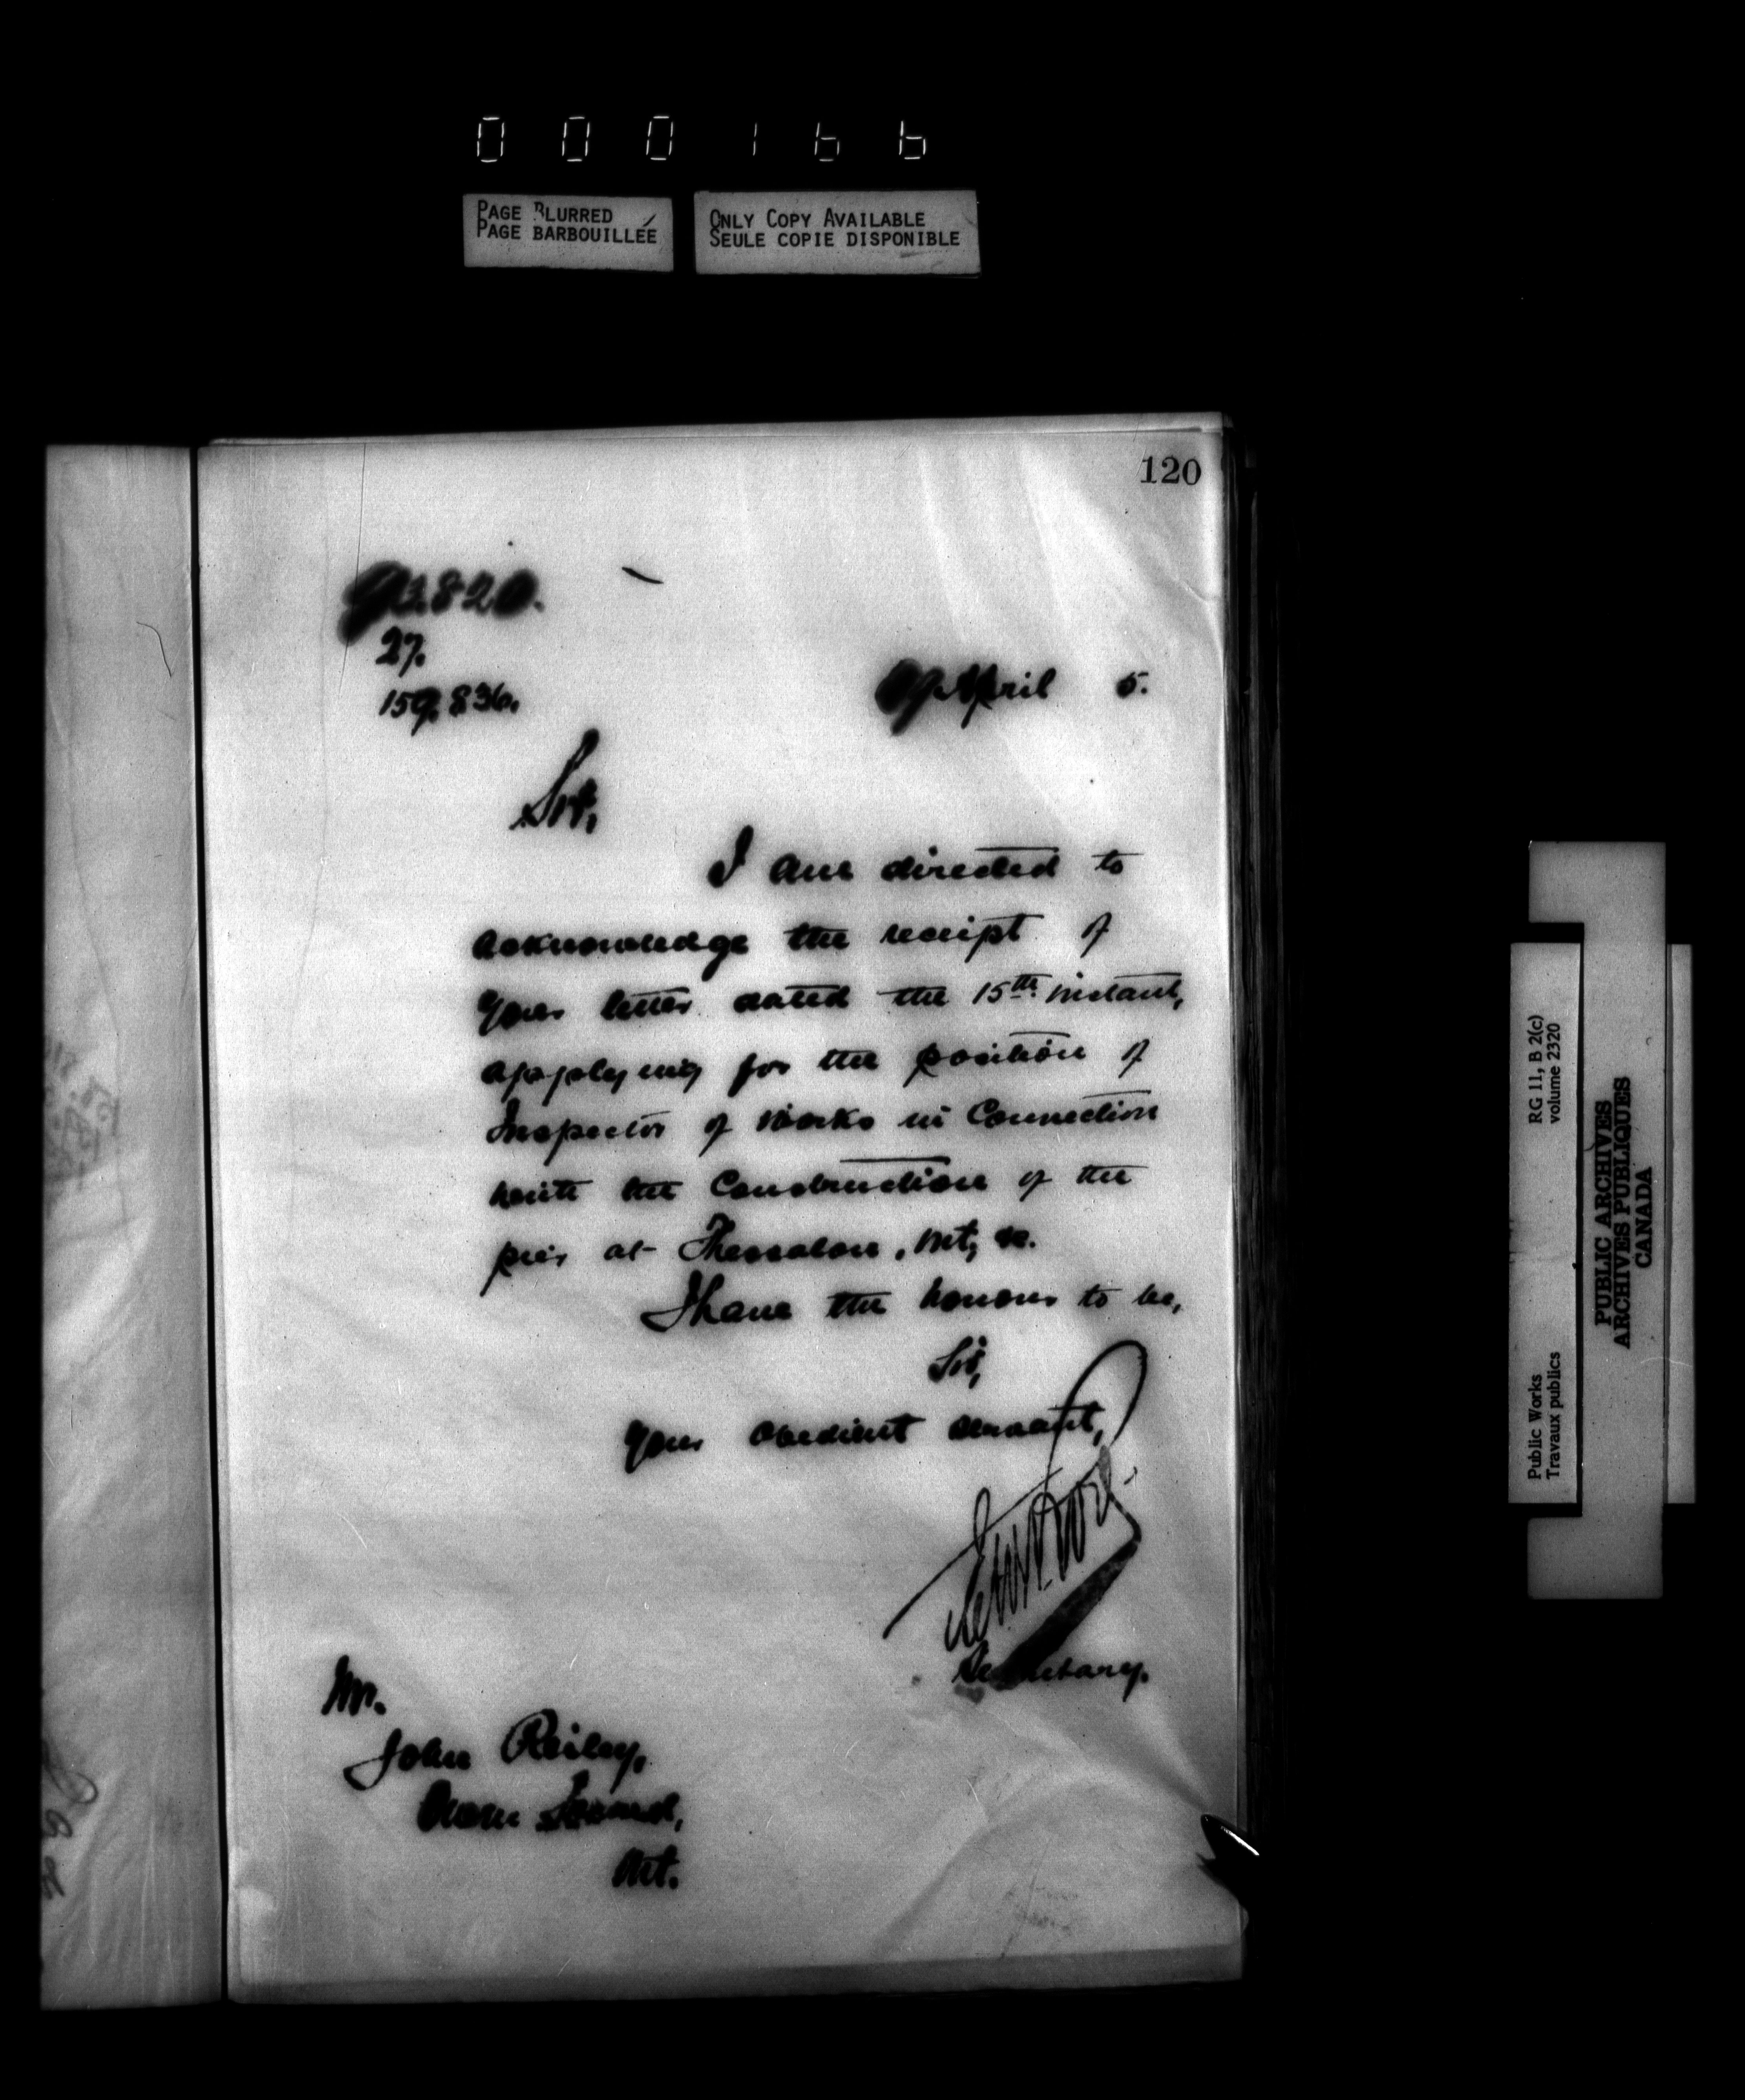 000166
PAGE BLURRED
PAGE BARBOUILLÉE
ONLY COPY AVAILABLE
SEULE COPIE DISPONIBLE
120
820.
27.
159,836.
April 5.
Sir,
I am directed to
acknowledge the receipt of
your letter dated the 15th instant,
applying for the position of
Inspector of Works in Connection
with the Construction of the
pier at Thessalon, Ont, &c.
I have the honour to be,
Sir,
Your obedient servant,
Secretary.
Mr.
John Reiley,
Owen Sound,
Ont.
RG 11, B 2(c)
volume 2320
Public Works
Travaux publics
PUBLIC ARCHIVES
ARCHIVES PUBLIQUES
CANADA